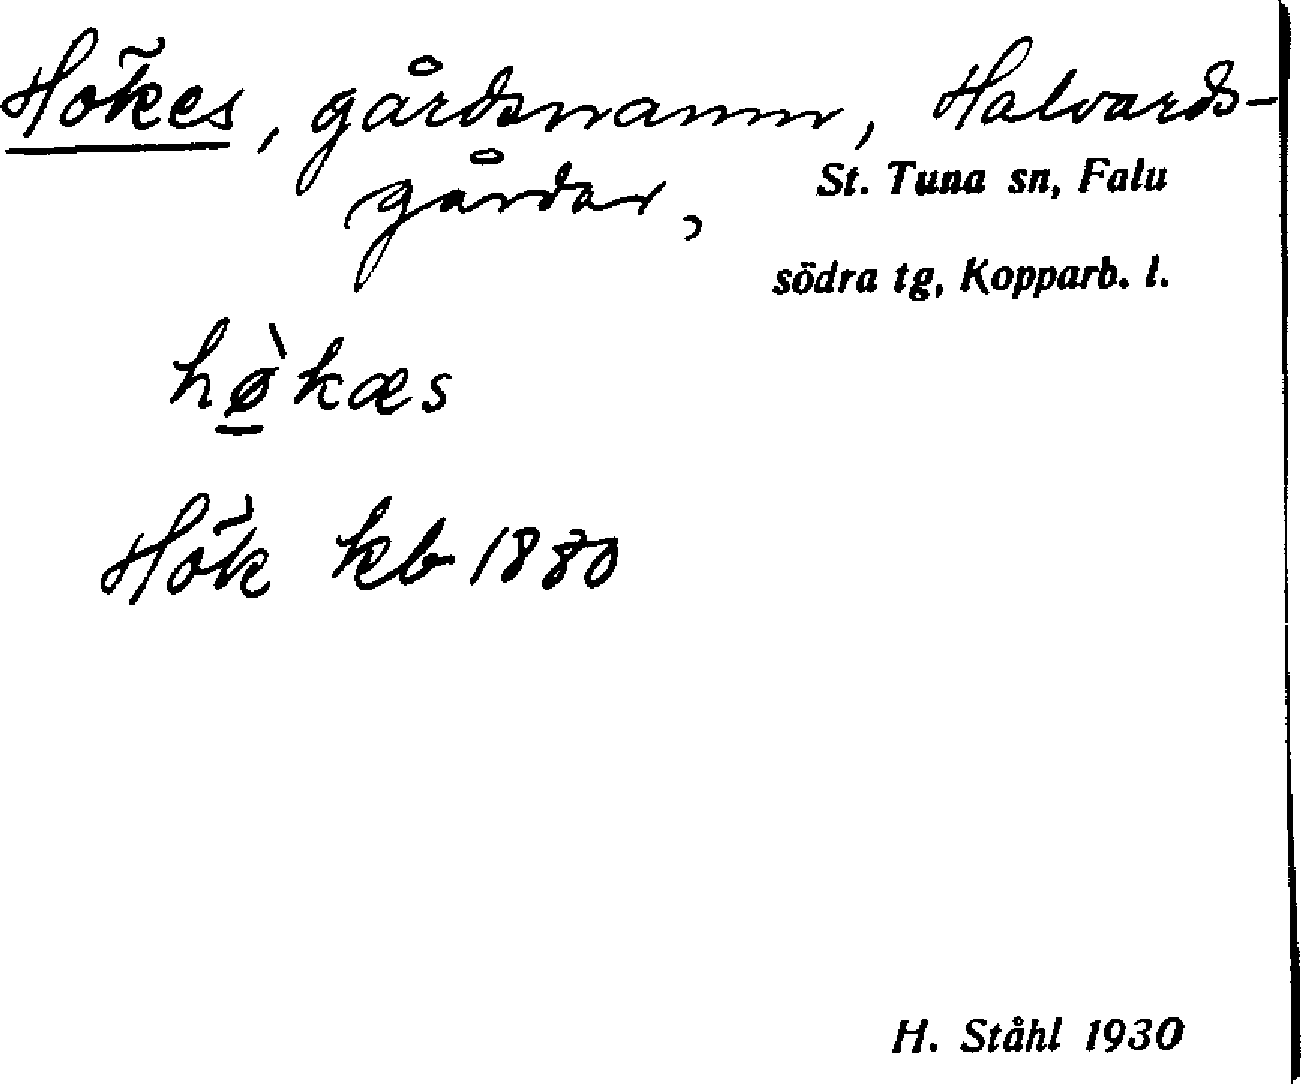 Hökes, gårdsnamn, Halvards-
gårdar, St. Tuna sn, Falu
södra tg, Kopparb. l.
hø̱̀kæs
Hök kb 1880
H. Ståhl 1930